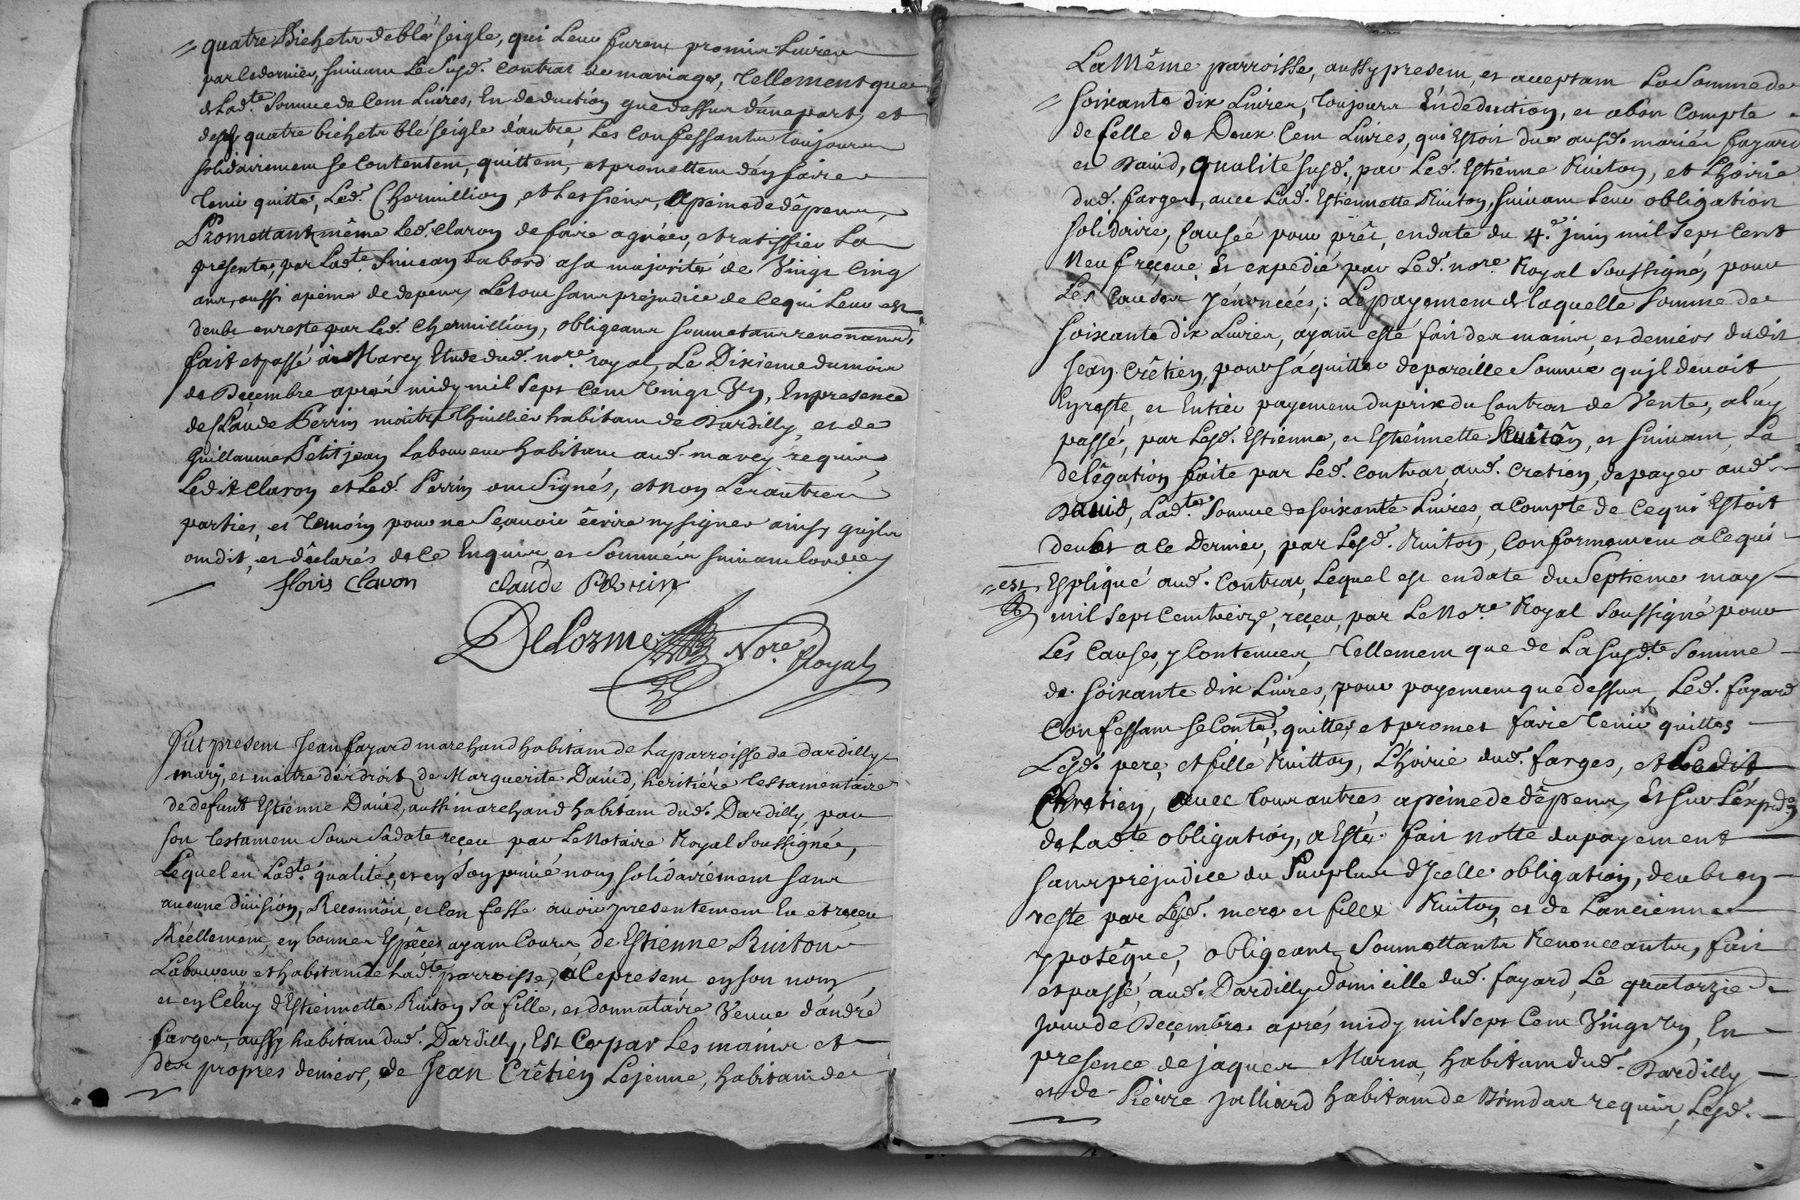 quatre Bichets de blé seigle, qui Leur furent promis Livrer
par le dernier, suivant Le Susd. Contrat de mariage, Tellement que
d Lad.te Somme de Cent Livres, En deduction que dessus d'une part, et
desd. quatre bichets blé seigle d'autre, Les Confessants Toujours
solidairement se Contentent, quittent, et promettent d'en faire
Tenir quitte, Led. Chermillion, et Les siens, a peine de dêpens,
Promettant même Led. Claron de faire agréer, et ratiffier La
presente, par Lad.te d'abord a sa majorité de Vingt Cinq
ans, aussi a peine de depens, Le tout sans préjudice de Ce qui Leur est
deubt en reste par Led. Chermillion, obligeans soumetans renonans,
fait et passé à Marcy Etude dud. no.re royal, Le Dixieme du mois
de Decembre après midy mil Sept Cent Vingt Un, En presence
de Claude Perrin maitre Thuillier habitant de Dardilly, et de
Guillaume Petitjean Laboureur habitant aud. marcy requis,
Ledit Claron et Led. Perrin ont Signés, et non Les autres
parties, et Temoin pour ne Sçavoir écrire ny signer ainsy qu'ils
ont dit, et déclarés de Ce Enquis, et Sommés suivant L'ordce
floris Claron Claude Perrin
Delorme No.re Royal
fut present Jean fayard marchand habitant de La parroisse de Dardilly
mary, et maitre des droits de Marguerite David, héritière testamentaire
de defunt Estienne David, aussi marchand habitant dud. Dardilly, par
son testament Sous sa date reçeu par Le Notaire Royal Soussignée,
Lequel en Lad.te qualité, et en Son privé nom solidairement sans
aucune division, Reconnoit, et Confesse avoir presentement Eu et reçeu
Réellement, en bonnes Espêces ayant Cours de Estienne Ruiton
Laboureur et habitant de Lad.te parroisse, a Ce present en son nom
et en Celuy d'Estiennette Ruiton Sa fille, et donnataire Veuve d'andré
farges, aussy habitant dud. Dardilly, Et Ce par Les mains et
des propres deniers, de Jean Crêtien Lejeune, habitant de
La Même parroisse, aussy present, et acceptant La Somme de
soixante dix Livres, toujours En déduction, et a bon Compte
de Celle de Deux Cent Livres, qui Estoit due ausd. mariés fayard
et David, qualité susd., par Led. Estienne Ruiton, et L'hoirie
dud. farges, avec Lad. Estiennette Ruiton, suivant Leur obligation
solidaire, Causée pour prêt, en date du 4.e juin mil Sept Cent
Neuf reçeue, Et expedié par Led. no.re Royal Soussigné, pour
Les Causes y énoncées : Le payement de laquelle Somme de
soixante dix Livres, ayant esté fait des mains, et deniers dudit
Jean Crêtien, pour s'aquitter de pareille Somme qu'il devoit
En reste, et Entier payement du prix du Contrat de Vente, a luy
passé, par Lesd. Estienne, et Estiennette Ruiton, et suivant La
delêgation faite par Led. Contrat, aud. Cretien, de payer aud.
David, Lad.te Somme de soixante Livres, a Compte de Ce qui Estoit
deubt a Ce Dernier, par Lesd. Ruiton, Conformement a Ce qui
est Expliqué aud. Contrat, Lequel est en date du Septieme may
mil sept Cent treize, reçeu, par Le No.re Royal Soussigné pour
Les Causes, y Contenues, Tellement que de La susd.te Somme
de soixante dix Livres, pour payement que dessus, Led. fayard
Confessant se Contente, quitte et promet faire Tenir quittes
Lesd. pere, et fille Ruitton, L'hoirie dud. farges, et Ledit
Chretien, avec Tous autres a peine de dêpens, Et sur L'expd.on
de Lad.te obligation, a Esté fait notte du payement
sans préjudice du Surplus d'Icelle obligation, deubt en
reste par Lesd. mere et fille Ruiton, et de L'ancienne
ypotêque, obligeants, Soumettants Renonceants, fait
et passé, aud. Dardilly domicille dud. fayard, Le quatorzie.
Jour de Deçembre après midy mil Sept Cent Vingt Un, En
presence de jaques Marna, habitant dud. Dardilly
et de Pierre Julliard habitant de requis, Lesd.